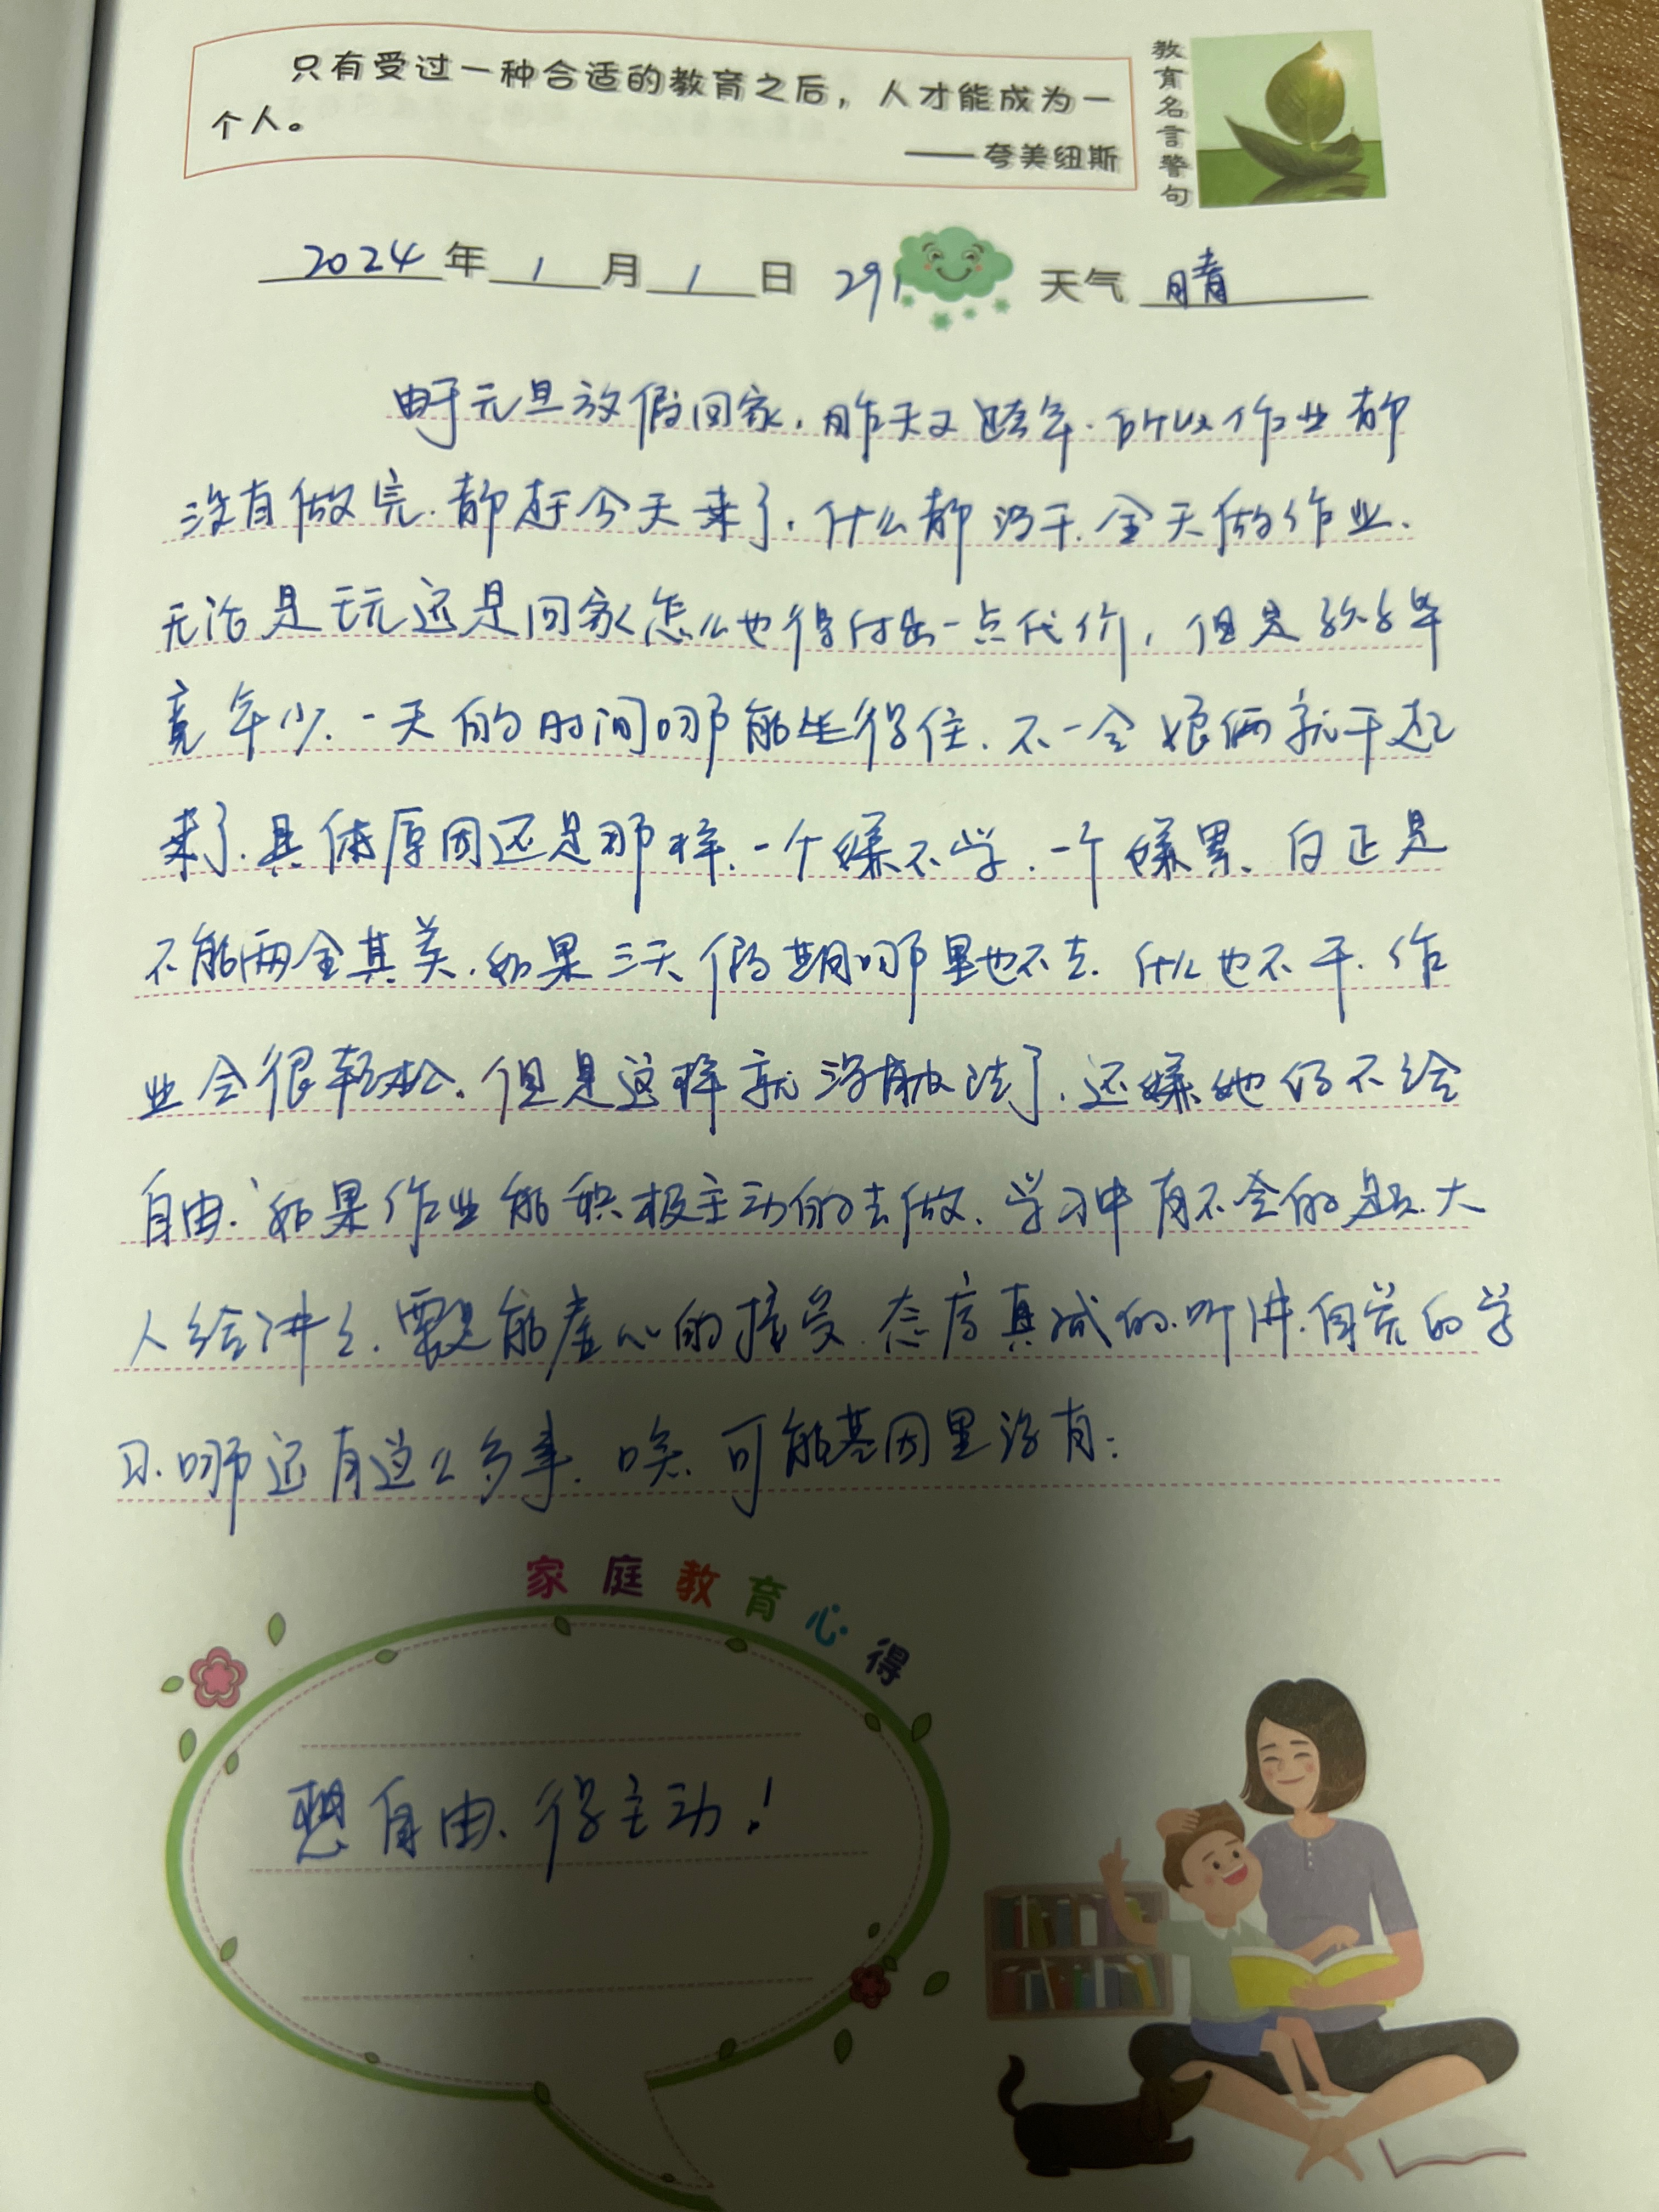 只有受过一种合适的教育之后，人才能成为一
个人。
——夸美纽斯
教育名言警句
2024年1月1日 291 天气 晴
由于元旦放假回家，昨天又跨年.所以作业都
没有做完.都赶今天来了.什么都没干.全天做作业.
无论是玩还是回家怎么也得付出一点代价，但是孩子毕
竟年少.一天的时间哪能坐得住.不一会娘俩就干起
来了.具体原因还是那样.一个嫌不学.一个嫌累.反正是
不能两全其美.如果三天假期哪里也不去.什么也不干.作
业会很轻松.但是这样就没有办法了.还嫌她妈不给
自由.如果作业能积极主动的去做.学习中有不会的题.大
人给讲讲.要是能虚心的接受.态度真诚的.听讲.自觉的学
习.哪还有这么多事.唉.可能基因里没有:
家庭教育心得
想自由.得主动!